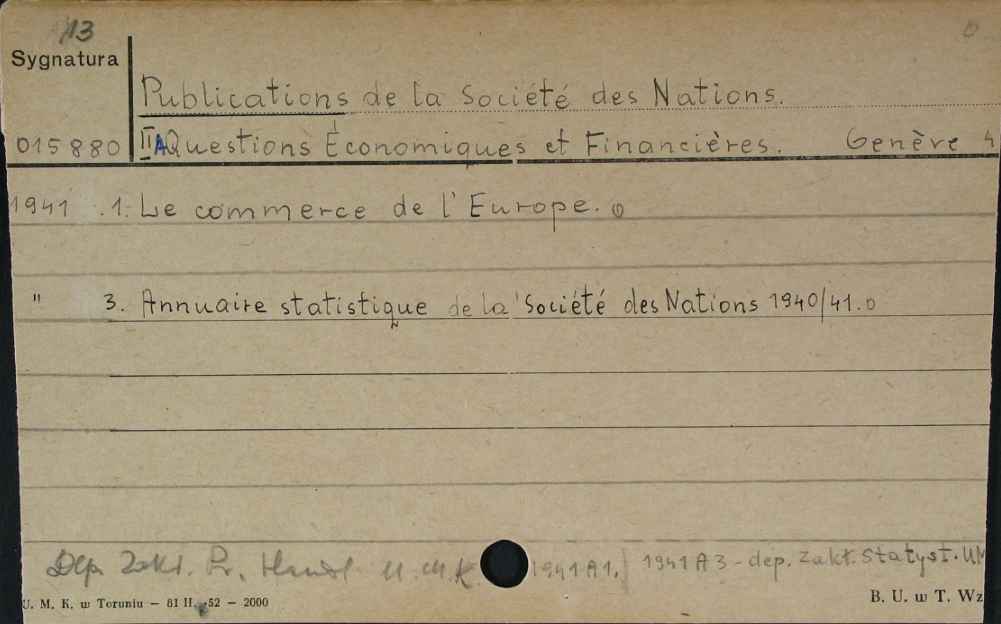 13 0
Sygnatura
Publications de la Société des Nations.
015880 II A Questions Économiques et Financières. Genève 4
1941 1. Le commerce de l'Europe. 0
" 3. Annuaire statistique de la Société des Nations 1940/41. 0
Dep. Zakł. Pr. Handl U.M.K. 1941 A1. 1941 A3 - dep. Zakł. Statyst. UM
U. M. K. w Toruniu — 81 H. 52 — 2000 B. U. w T. Wz